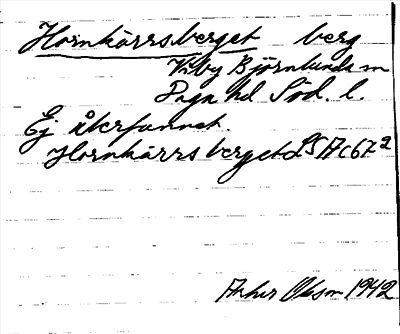 Hornkärrsberget berg
Vitby Björnlunda sn
Daga hd Söd. l.
Ej återfunnet
Hornkärrsberget LSA C67 2
Olson 1942